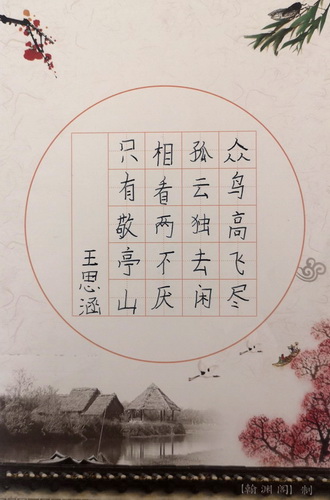 众鸟高飞尽
孤云独去闲
相看两不厌
只有敬亭山
王思涵
【翰渊阁】制